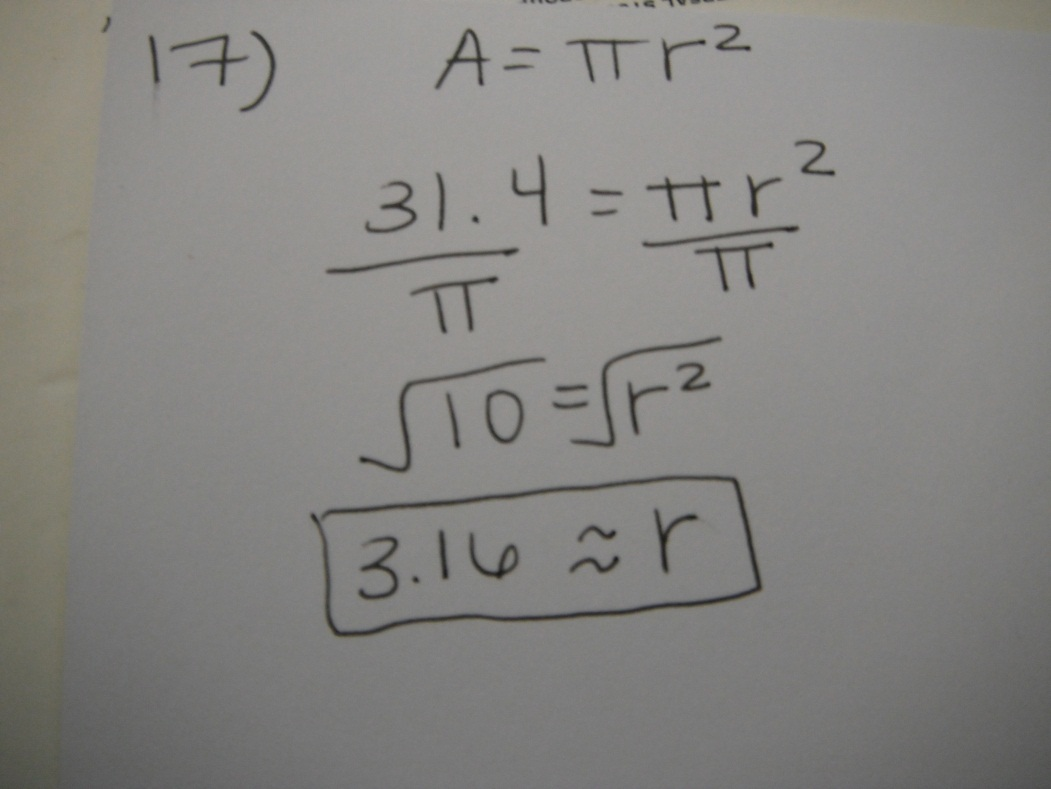 17) A = πr²
31.4 = πr²
π π
√10 = √r²
3.16 ≈ r